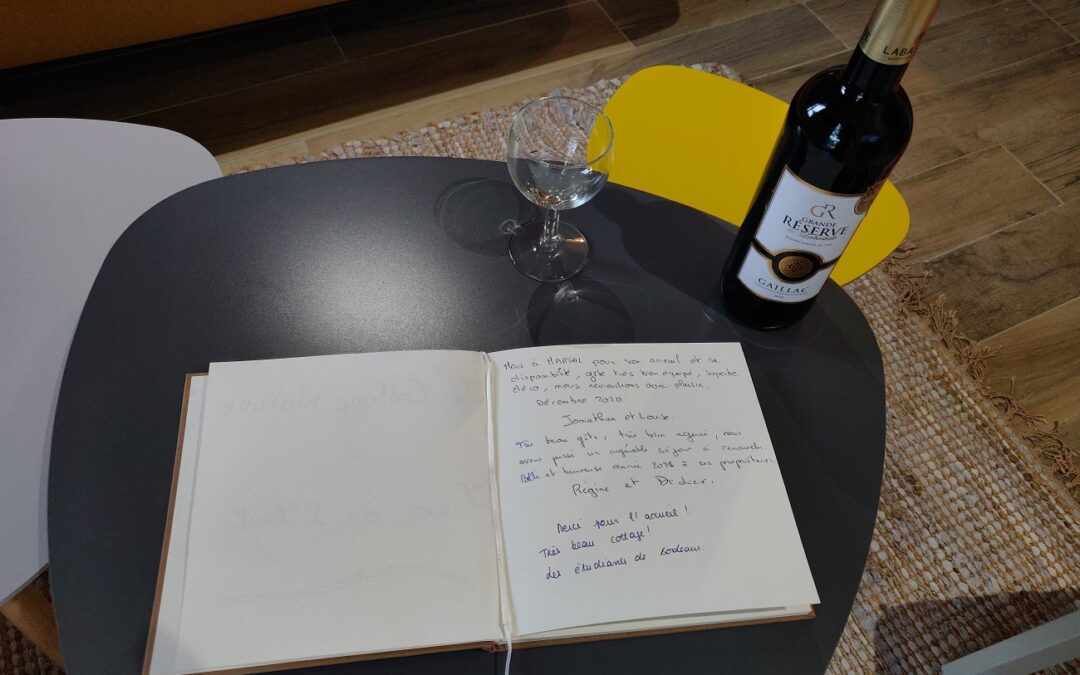 LABA
GR
GRANDE
RÉSERVE
GAILLAC
Merci à MARTIAL pour son accueil et sa
disponibilité, gîte très bien équipé, superbe
déco, nous reviendrons avec plaisir.
Décembre 2020.
Jonathan et Louise.
Très beau gîte, très bien agencé, nous
avons passé un agréable séjour à renouveler.
Belle et heureuse année à ses propriétaires.
Régine et Didier.
Merci pour l'accueil !
Très beau cottage !
des étudiants de Bordeaux